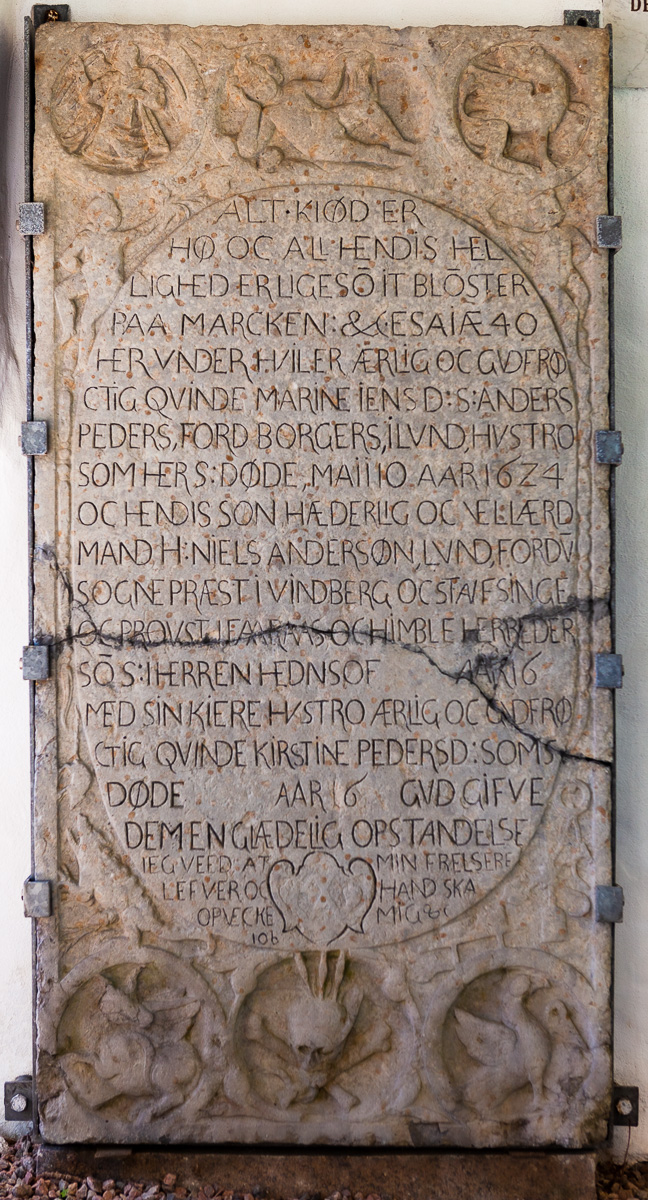 DE
ALT·KIØD ER
HØ OC ALL HENDIS HEL
LIGHED ER LIGESŌ IT BLŌSTER
PAA MARCKEN: &c: ESAIÆ 40
HER VNDER HVILER ÆRLIG OC GVDFRØ
CTIG QVINDE MARINE IENS D:S: ANDERS
PEDERS, FORD BORGERS, I LVND, HVSTRO
SOM HER S: DØDE, MAII 10 AAR 1624
OC HENDIS SØN HÆDERLIG OC VELLÆRD
MAND H: NIELS ANDERSØN, LVND, FORDV̄
SOGNEPRÆST I VINDBERG OC STAFSINGE
OC PROVST I FAARAAS OC HIMBLE HERREDER
SŌ S: I HERREN HEDNSOF AAR 16
MED SIN KIERE HVSTRO ÆRLIG OC GVDFRØ
CTIG QVINDE KIRSTINE PEDERSD: SOM S
DØDE AAR 16 GVD GIFVE
DEM EN GLÆDELIG OPSTANDELSE
IEG VEED: AT MIN FRELSERE
LEFVER OC HAND SKA
OPVECKE MIG &c
IOB